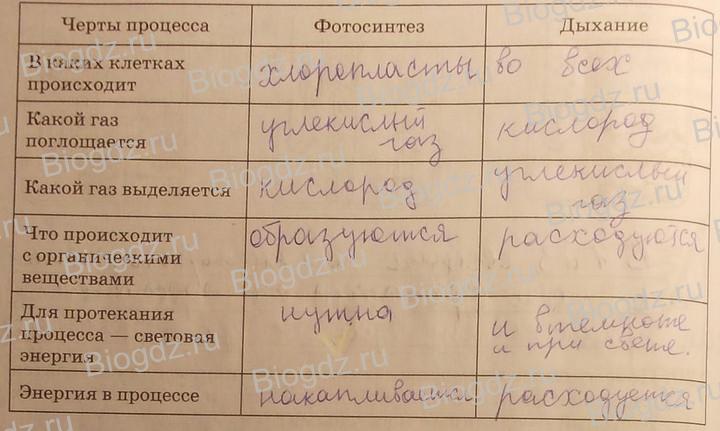 Черты процесса Фотосинтез Дыхание
В каких клетках происходит хлоропласты во всех
Какой газ поглощается углекислый газ кислород
Какой газ выделяется кислород углекислый газ
Что происходит с органическими веществами образуются расходуются
Для протекания процесса — световая энергия нужна и в темноте и при свете.
Энергия в процессе накапливается расходуется
Biogdz.ru